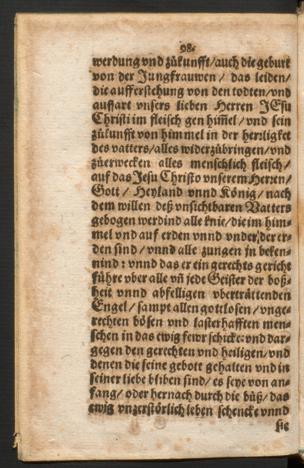 98.
werdung vnd zůkunfft/auch die geburt
von der Jungfrauwen / das leiden/
die aufferstehung von den todten/vnd
auffart vnsers lieben Herren JEsu
Christi im fleisch gen him̃el/ vnd sein
zůkunfft von himmel in der herrligket
des vatters/alles widerzübringen/vnd
züerwecken alles menschlich fleisch/
auf das Jesu Christo vnserem Herren/
Gott / Heyland vnnd König/ nach
dem willen deß vnsichtbaren Vatters
gebogen werdind alle knie/die im him-
mel vnd auf erden vnnd vnder der er-
den sind/ vnnd alle zungen jn beken-
nind: vnnd das er ein gerechts gericht
führe vber alle vñ jede Geister der boß-
heit vnnd abfelligen vberträttenden
Engel/ sampt allen gottlosen/ vnge-
rechten bösen vnd lasterhafften men-
schen in das ewig fewr schicke: vnd dar-
gegen den gerechten vnd heiligen/vnd
denen die seine gebott gehalten vnd in
seiner liebe bliben sind/ es seye von an-
fang/ oder hernach durch die büß/das
ewig vnzerstörlich leben schencke vnnd
sie